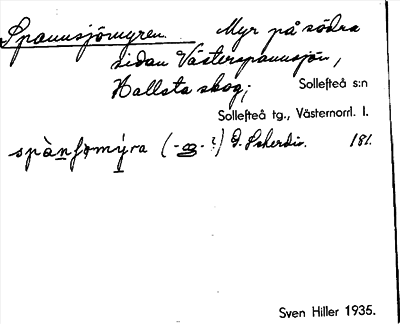 Spannsjömyren. Myr på södra
sidan Västerspannsjön,
Hallsta skog; Sollefteå s:n
Sollefteå tg., Västernorrl. l.
181.
Sven Hiller 1935.